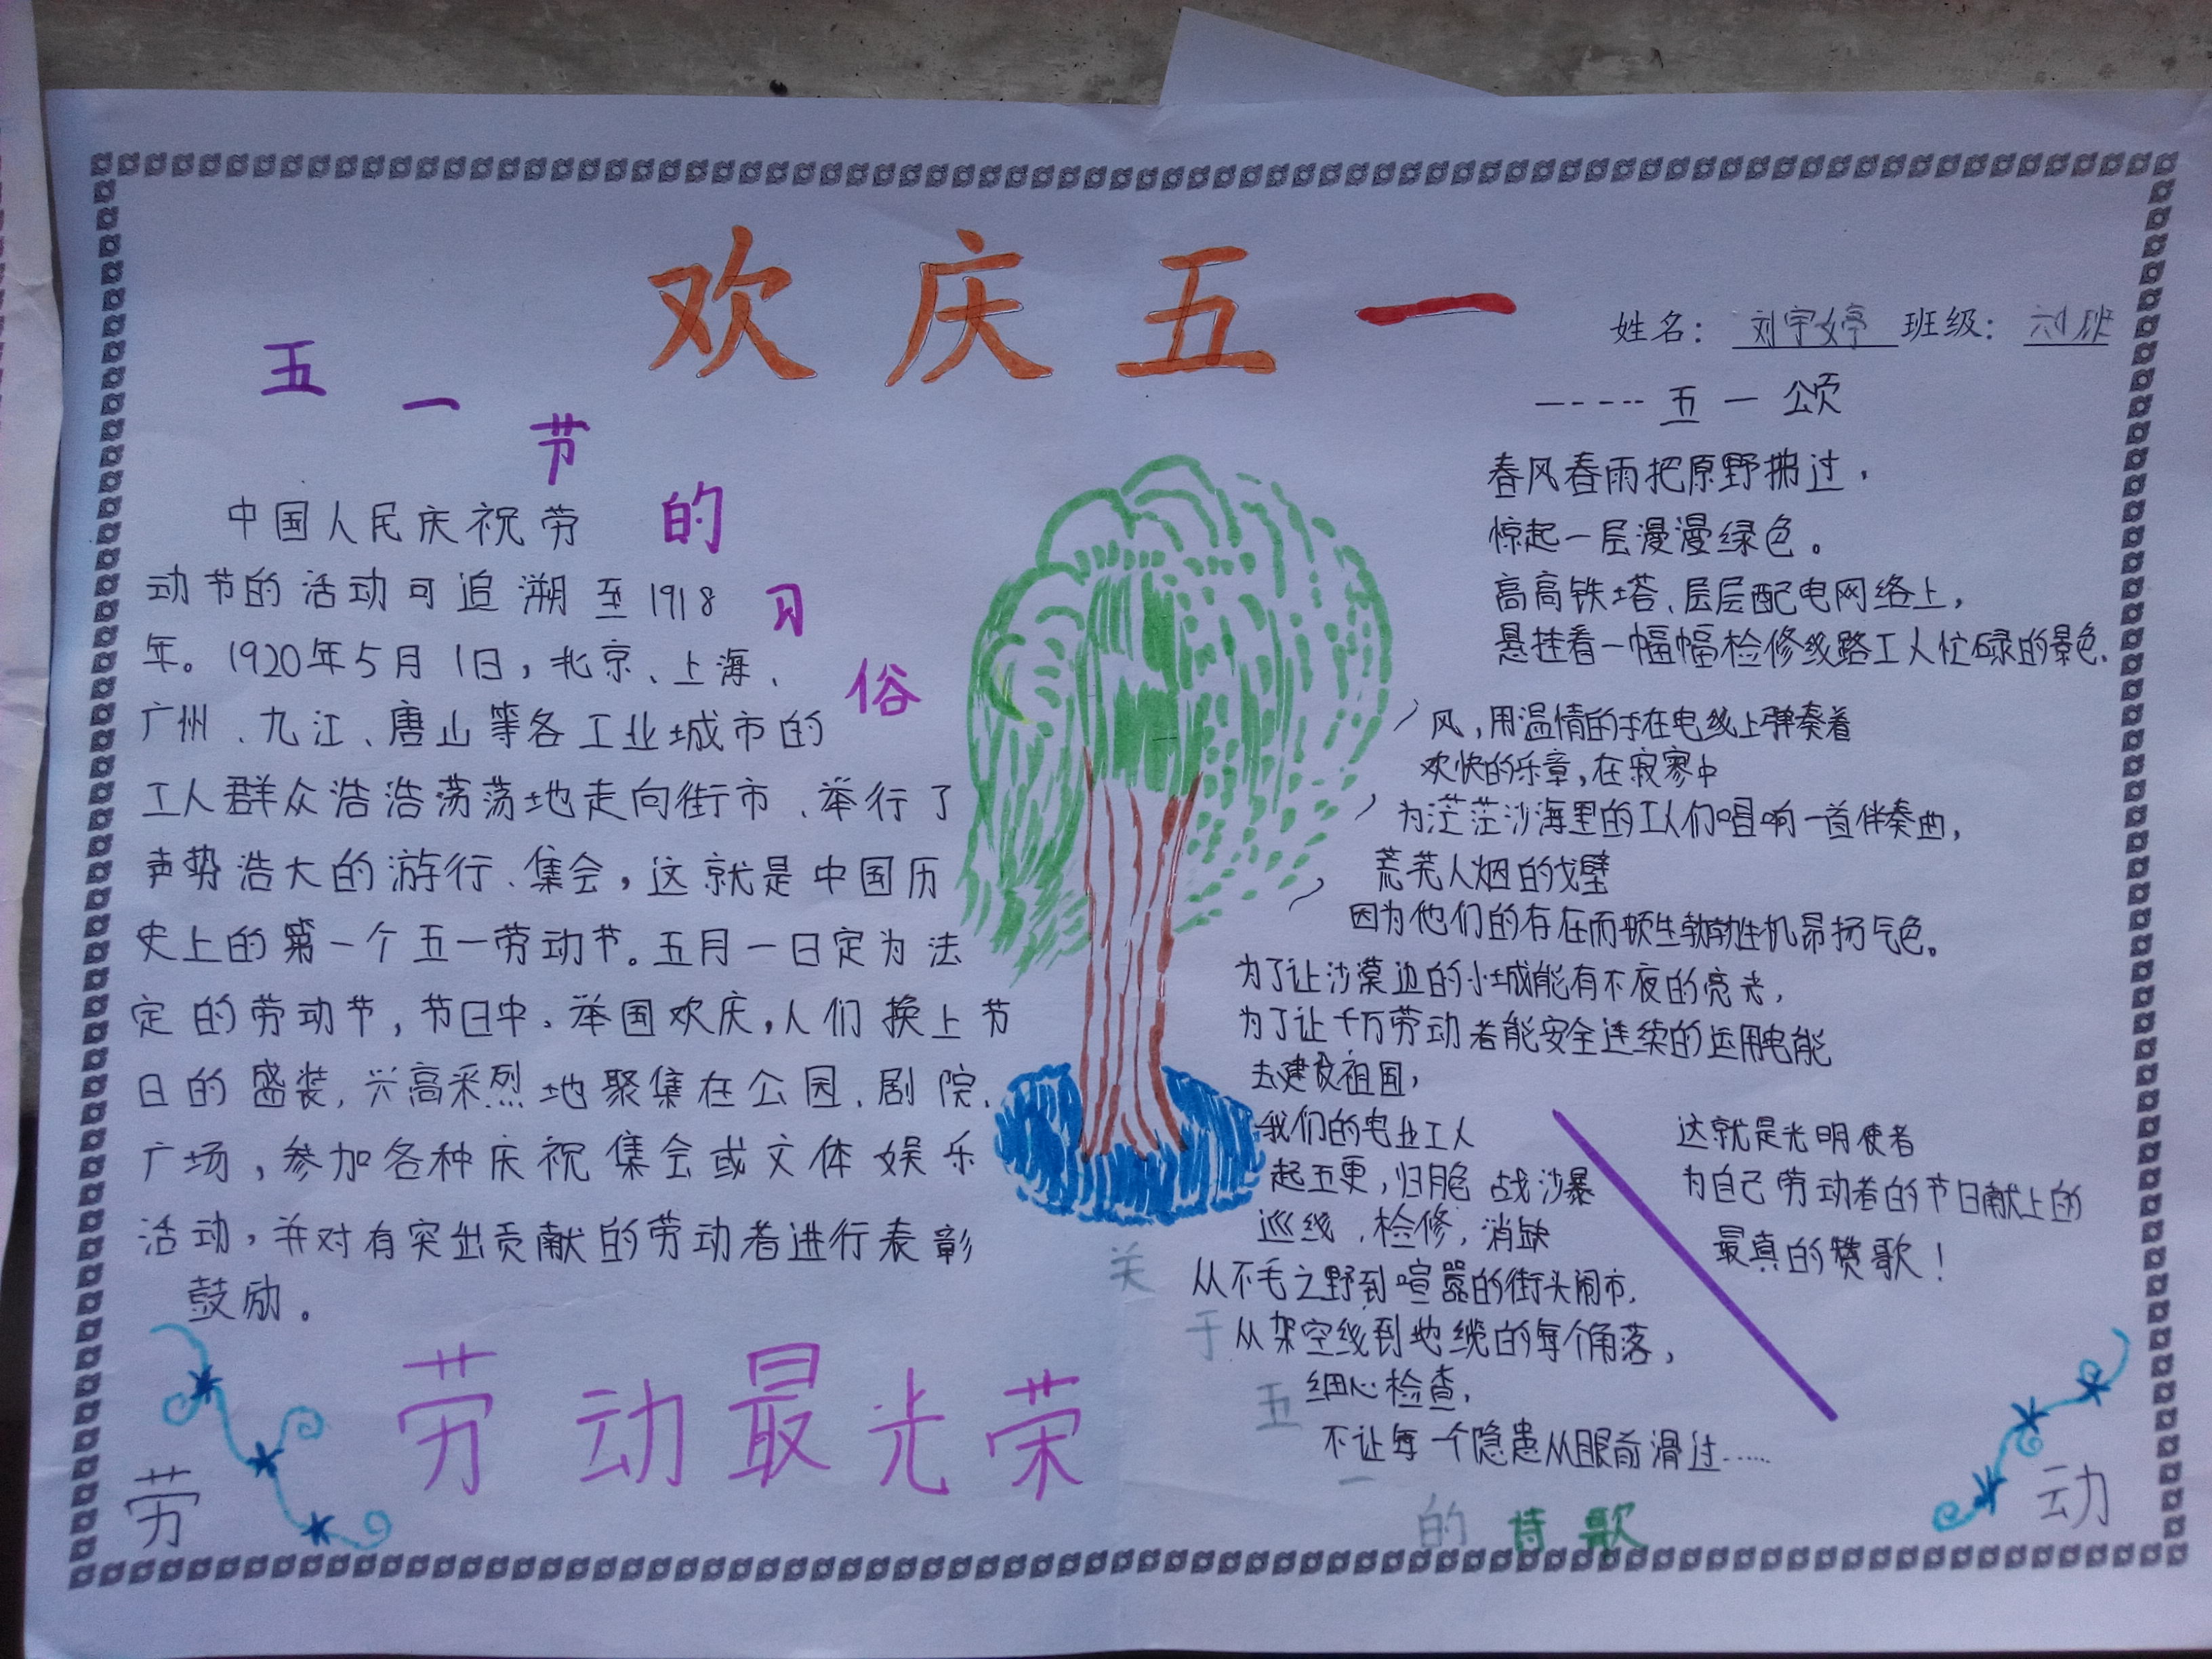 欢庆五一
姓名：刘宇婷 班级：
五一节的习俗
中国人民庆祝劳
动节的活动可追溯至1918
年。1920年5月1日，北京、上海、
广州、九江、唐山等各工业城市的
工人群众浩浩荡荡地走向街市、举行了
声势浩大的游行、集会，这就是中国历
史上的第一个五一劳动节。五月一日定为法
定的劳动节，节日中，举国欢庆，人们换上节
日的盛装，兴高采烈地聚集在公园、剧院、
广场，参加各种庆祝集会或文体娱乐
活动，并对有突出贡献的劳动者进行表彰
鼓励。
劳动最光荣
劳
-----五一颂
春风春雨把原野拂过，
惊起一层漫漫绿色。
高高铁塔、层层配电网络上，
悬挂着一幅幅检修线路工人忙碌的景色、
风，用温情的手在电线上弹奏着
欢快的乐章，在寂寥中
为茫茫沙海里的工人们唱响一首伴奏曲，
荒芜人烟的戈壁
因为他们的存在而顿生勃勃生机昂扬气色。
为了让沙漠边的小城能有不夜的亮光，
为了让千万劳动者能安全连续的运用电能
去建设祖国，
我们的电业工人
起五更，归月色 战沙暴
巡线、检修，消缺
从不毛之野到喧嚣的街头闹市，
从架空线到地缆的每个角落，
细心检查，
不让每一个隐患从眼前滑过……
这就是光明使者
为自己劳动者的节日献上的
最真的赞歌！
关于五一的诗歌
动